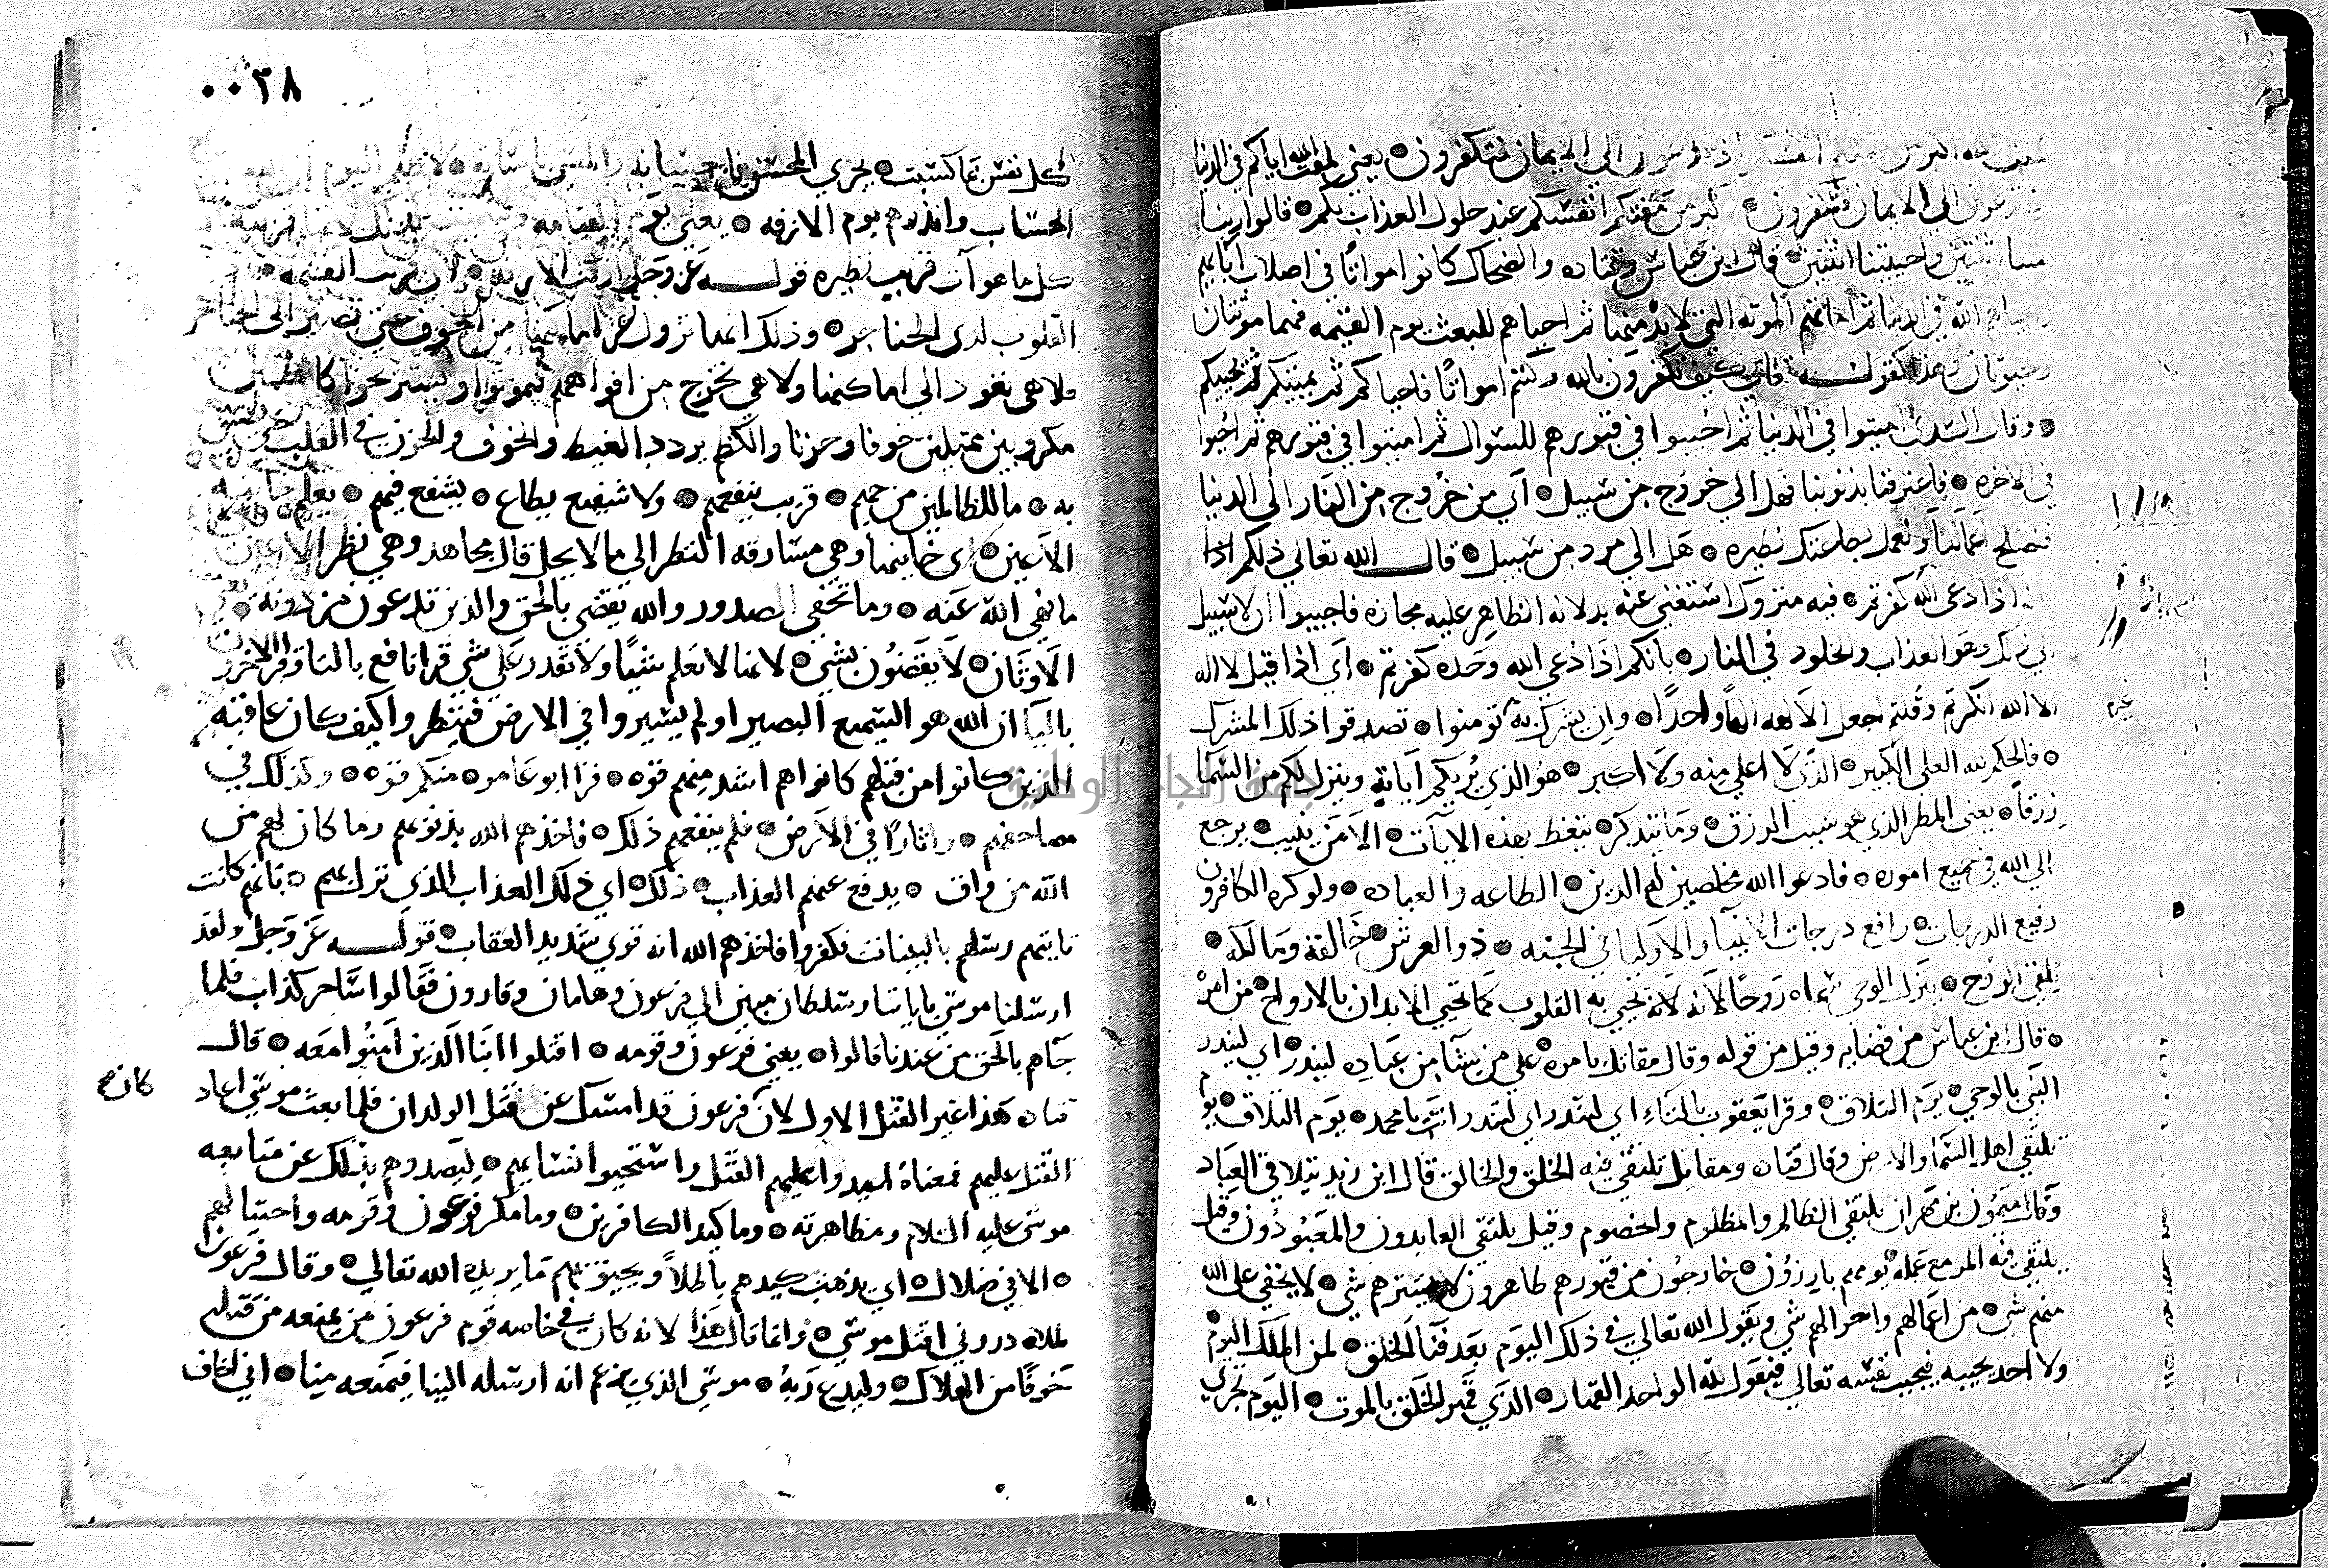 لمقت الله اكبر من مقتكم انفسكم اذ تدعون الي الايمان فتكفرون يعني لمقت الله اياكم في الدنيا
اذ تدعون الي الايمان فتكفرون اكبر من مقتكم انفسكم عند حلول العذاب بكم قالوا ربنا
امتنا اثنتين واحييتنا اثنتين قال ابن عباس وقتاده والضحاك كانوا امواتا في اصلاب ابايهم
فاحياهم الله في الدنيا ثم اماتهم الموته التي لا بد منها ثم احياهم للبعث يوم القيمه فهما موتتان
وحيوتان وهذا كقوله تعالي كيف تكفرون بالله وكنتم امواتا فاحياكم ثم يميتكم ثم يحييكم
وقال السدي اميتوا في الدنيا ثم احيوا في قبورهم للسوال ثم اميتوا في قبورهم ثم احيوا
في الاخره فاعترفنا بذنوبنا فهل الي خروج من سبيل اي من خروج من النار الي الدنيا
فنصلح اعمالنا ونعمل بطاعتك نظيره هل الي مرد من سبيل قال الله تعالي ذلكم اذا
انه اذا دعي الله كفرتم فيه متروك استغني عنه بدلاله الظاهر عليه مجازه فاجيبوا ان لا سبيل
الي ذلك وهو العذاب والخلود في النار بانكم اذا دعي الله وحده كفرتم اي اذا قيل لا اله
الا الله انكرتم وقلتم اجعل الالهه الها واحدا وان يشرك به تومنوا تصدقوا ذلك المشرك
فالحكم لله العلي الكبير الذي لا اعلي منه ولا اكبر هو الذي يريكم اياته وينزل لكم من السما
رزقا يعني المطر الذي هو سبب الرزق وما يتذكر يتعظ بهذه الايات الا من ينيب يرجع
الي الله في جميع اموره فادعوا الله مخلصين له الدين الطاعه والعباده ولو كره الكافرون
رفيع الدرجات رافع درجات الانبيا والاوليا في الجنه ذو العرش خالقه ومالكه
يلقي الروح ينزل الوحي سماه روحا لانه لانه تحيي به القلوب كما تحيي الابدان بالارواح من امره
قال ابن عباس من قضايه وقيل من قوله وقال مقاتل بامره علي من يشا من عباده لينذر اي لينذر
النبي بالوحي يوم التلاق وقرا يعقوب بالتاء اي لتنذر اي لتنذر انت يا محمد يوم التلاق يوم
تلتقي اهل السما والارض وقال قتاده ومقاتل تلتقي فيه الخلق والخالق قال ابن زيد يتلاقي العباد
وقال ميمون بن مهران يلتقي الظالم والمظلوم والخصوم وقيل يلتقي العابدون والمعبودون وقيل
يلتقي فيه المر مع عمله يوم هم بارزون خارجون من قبورهم ظاهرون لا يسترهم شي لا يخفي علي الله
منهم شي من اعمالهم واحوالهم شي ويقول الله تعالي في ذلك اليوم بعد فنا الخلق لمن الملك اليوم
ولا احد يجيبه فيجيب نفسه تعالي فيقول لله الواحد القهار الذي قهر الخلق بالموت اليوم تجزي
٠٠٣٨
كل نفس بما كسبت يجزي المحسن باحسانه والمسي باساته لا ظلم اليوم
الحساب وانذرهم يوم الازفه يعني يوم القيامه
كل ما هو ات قريب نظيره قوله عز وجل ازفت الازفه اي قربت القيمه
القلوب لدي الحناجر وذلك انها تزول عن اماكنها من الخوف حتي تصير الي الحناجر
فلا هي تعود الي اماكنها ولا هي تخرج من افواههم فيموتوا ويستريحوا كاظمين
مكروبين ممتلين خوفا وحزنا والكظم تردد الغيظ والخوف والحزن في القلب حتي يضيق
به ما للظالمين من حميم قريب ينفعهم ولا شفيع يطاع يشفع فيهم يعلم خاينه
الاعين اي خاينتها وهي مسارقه النظر الي ما لا يحل قال مجاهد وهي نظر الاعين
ما نهي الله عنه وما تخفي الصدور والله يقضي بالحق والذين تدعون من دونه
الاوثان لا يقضون بشي لانها لا تعلم شيا ولا تقدر علي شي قرا نافع بالتا وقرا الاخرون
باليا ان الله هو السميع البصير اولم يسيروا في الارض فينظروا كيف كان عاقبه
الذين كانوا من قبلهم كانوا هم اشد منهم قوه قرا ابو عامر منكم قوه وكذلك في
مصاحفهم واثارا في الارض فلم ينفعهم ذلك فاخذهم الله بذنوبهم وما كان لهم من
الله من واق يدفع عنهم العذاب ذلك اي ذلك العذاب الذي نزل بهم بانهم كانت
تاتيهم رسلهم بالبينات فكفروا فاخذهم الله انه قوي شديد العقاب قوله عز وجل ولقد
ارسلنا موسي باياتنا وسلطان مبين الي فرعون وهامان وقارون فقالوا ساحر كذاب فلما
جاهم بالحق من عندنا قالوا يعني فرعون وقومه اقتلوا ابنا الذين امنوا معه قال
قتاده هذا غير القتل الاول لان فرعون قد امسك عن قتل الولدان فلما بعث موسي اعاد
كان
القتل عليهم فمعناه اعيدوا عليهم القتل واستحيوا نسايهم ليصدوهم بذلك عن متابعه
موسي عليه السلام ومظاهرته وما كيد الكافرين وما مكر فرعون وقومه واحتيالهم
الا في ضلال اي يذهب كيدهم باطلا ويحيق بهم ما يريده الله تعالي وقال فرعون
لملايه ذروني اقتل موسي وانما قال هذا لانه كان في خاصه قوم فرعون من يمنعه من قتله
خوفا من الهلاك وليدع ربه موسي الذي يزعم انه ارسله الينا فيمنعه منا اني اخاف